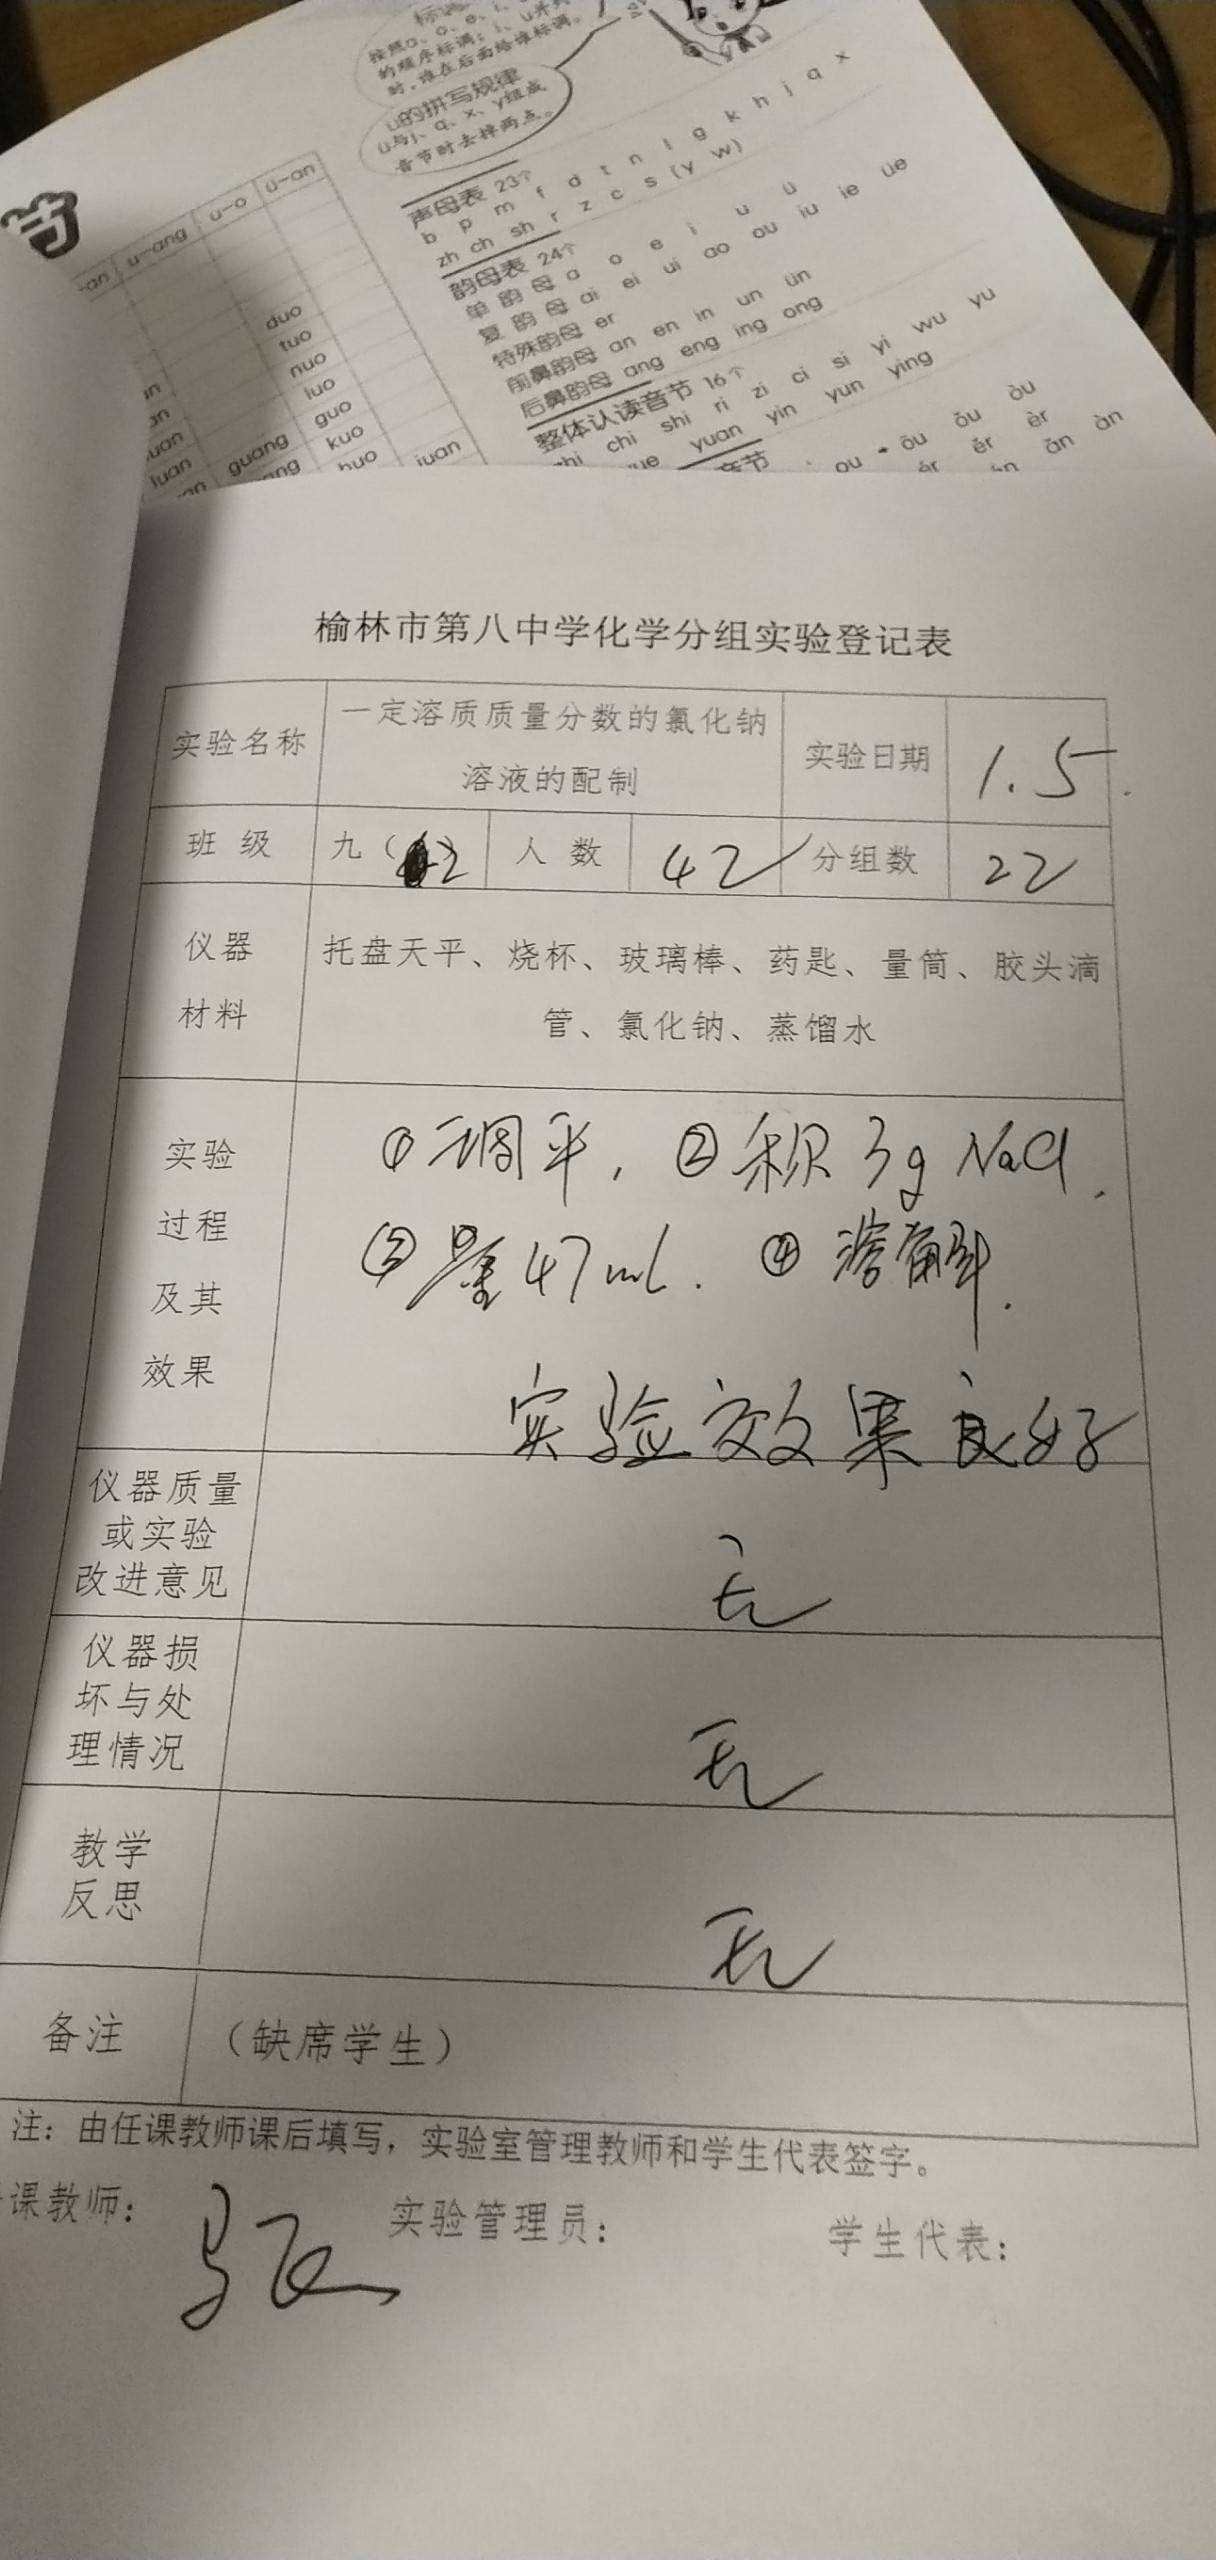 的顺序标调；i、u并列
时，谁在后面给谁标调。
ü的拼写规律
ü与j、q、x、y组成
音节时去掉两点。
节
u-ang u-o ü-an
duo
tuo
nuo
luo
guang guo
kuo
huo juan
声母表 23个
b p m f d t n l g k h j q x
zh ch sh r z c s (y w)
韵母表 24个
单韵母 a o e i u ü
复韵母 ai ei ui ao ou iu ie üe
特殊韵母 er
前鼻韵母 an en in un ün
后鼻韵母 ang eng ing ong
整体认读音节 16个
chi shi ri zi ci si yi wu yu
yuan yin yun ying
榆林市第八中学化学分组实验登记表
实验名称 一定溶质质量分数的氯化钠溶液的配制 实验日期 1.5
班级 九（2） 人数 42 分组数 22
仪器材料 托盘天平、烧杯、玻璃棒、药匙、量筒、胶头滴
管、氯化钠、蒸馏水
实验过程及其效果 ①调平，②称取3g NaCl.
③量47ml. ④溶解.
实验效果良好
仪器质量或实验改进意见 无
仪器损坏与处理情况 无
教学反思 无
备注 （缺席学生）
注：由任课教师课后填写，实验室管理教师和学生代表签字。
课教师： 实验管理员： 学生代表：